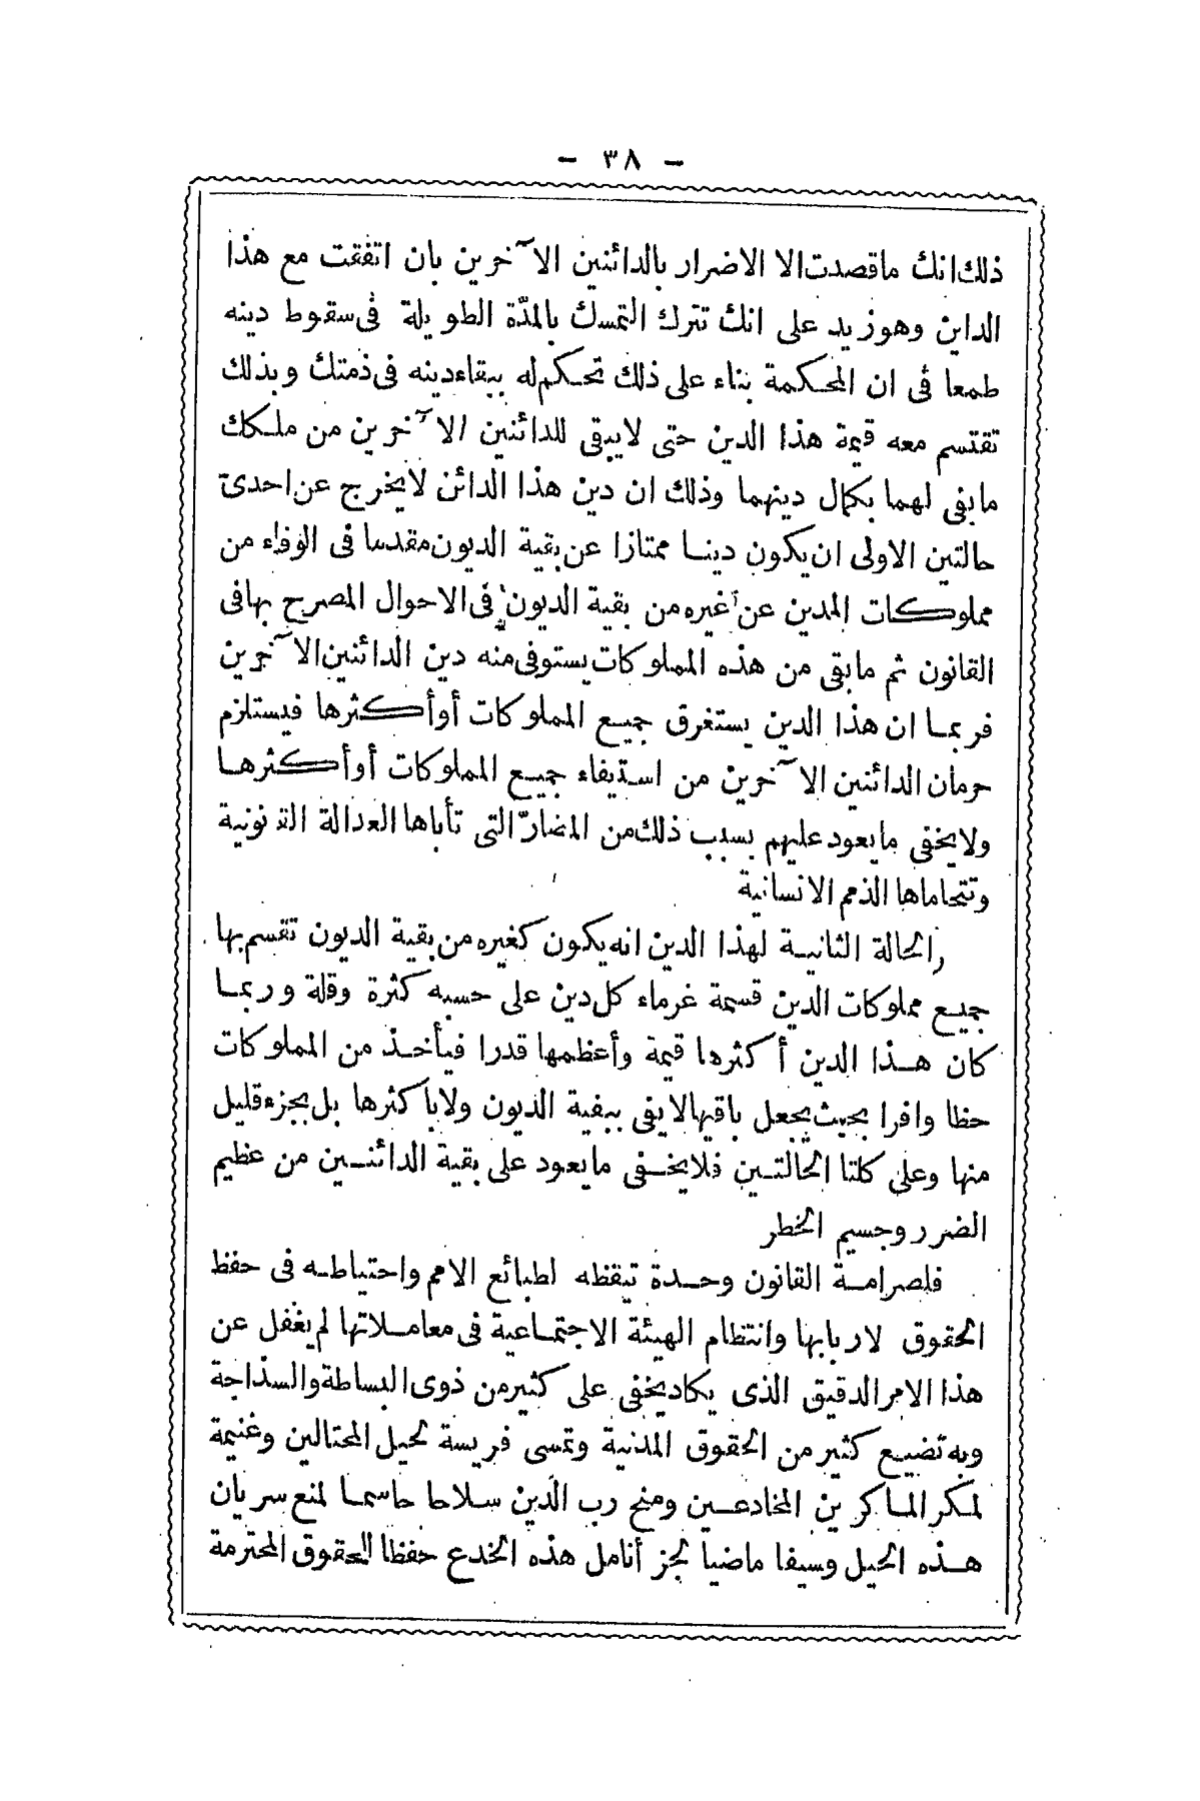 - ٣٨ -
ذلك انك ما قصدت الا الاضرار بالدائنين الآخرين بان اتفقت مع هذا
الداين وهو زيد على انك تترك التمسك بالمدّة الطويلة فى سقوط دينه
طمعا فى ان المحكمة بناء على ذلك تحكم له ببقاء دينه فى ذمتك وبذلك
تقتسم معه قيمة هذا الدين حتى لا يبقى للدائنين الآخرين من ملكك
ما يفى لهما بكمال دينهما وذلك ان دين هذا الدائن لا يخرج عن احدى
حالتين الاولى ان يكون دينا ممتازا عن بقية الديون مقدما فى الوفاء من
مملوكات المدين عن غيره من بقية الديون فى الاحوال المصرح بها فى
القانون ثم ما بقى من هذه المملوكات يستوفى منه دين الدائنين الآخرين
فربما ان هذا الدين يستغرق جميع المملوكات أو أكثرها فيستلزم
حرمان الدائنين الآخرين من استيفاء جميع المملوكات أو أكثرها
ولا يخفى ما يعود عليهم بسبب ذلك من المضارّ التى تأباها العدالة القانونية
وتتحاماها الذمم الانسانية
الحالة الثانية لهذا الدين انه يكون كغيره من بقية الديون تقسم بها
جميع مملوكات الدين قسمة غرماء كل دين على حسبه كثرة وقلة وربما
كان هذا الدين أكثرها قيمة وأعظمها قدرا فيأخذ من المملوكات
حظا وافرا بحيث يجعل باقيها لا يفى ببقية الديون ولا باكثرها بل بجزء قليل
منها وعلى كلتا الحالتين فلا يخفى ما يعود على بقية الدائنين من عظيم
الضرر وجسيم الخطر
فلصرامة القانون وحدة تيقظه لطبائع الامم واحتياطه فى حفظ
الحقوق لاربابها وانتظام الهيئة الاجتماعية فى معاملاتها لم يغفل عن
هذا الامر الدقيق الذى يكاد يخفى على كثير من ذوى البساطة والسذاجة
وبه تضيع كثير من الحقوق المدنية وتمسى فريسة لحيل المحتالين وغنيمة
لمكر الماكرين المخادعين ومنح رب الدين سلاحا حاسما لمنع سريان
هذه الحيل وسيفا ماضيا لجز أنامل هذه الخدع حفظا للحقوق المحترمة